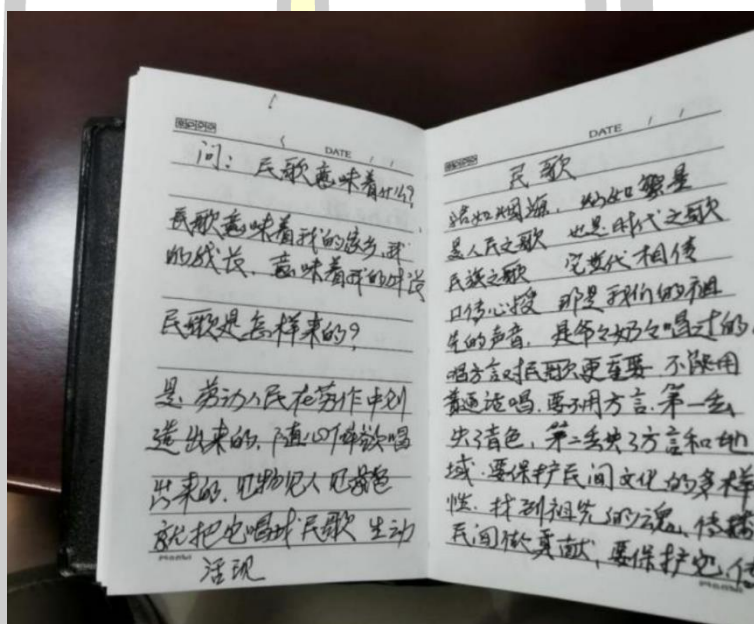 DATE / /
问：民歌意味着什么？
民歌意味着我的故乡，我
的成长，意味着我的
民歌是怎样来的？
是劳动人民在劳作中创
造出来的，随心所欲唱
出来的，见物见人见景色
就把它唱成民歌 生动
活现
DATE / /
民歌
浩如烟海， 如繁星
是人民之歌 也是时代之歌
民族之歌 它世代相传
口传心授 那是我们的祖
先的声音，是爷々奶々唱过的
唱方言对民歌更重要 不能用
普通话唱，要用方言，第一丢
失了音色，第二丢失了方言和地
域，要保护民间文化的多样
性，找到祖先的魂、传播
民间做贡献，要保护它，传